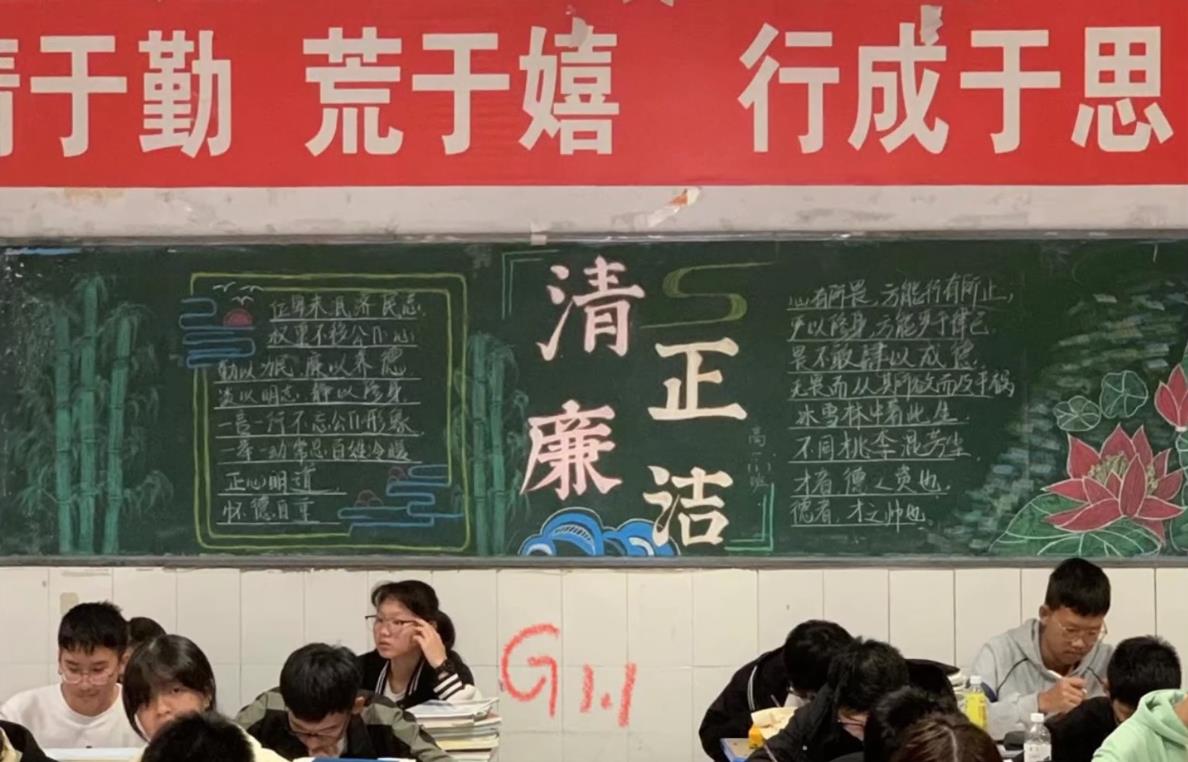 精于勤 荒于嬉 行成于思
位卑未 济民志,
权重不移公仆心
勤以为民,廉以养德
淡以明志,静以修身,
一言一行不忘公仆形象
一举一动常思百姓冷暖
正心明道
怀德自重
清正
廉洁
心有所畏,方能行有所止,
严以修身,方能严于律己.
畏不敢肆以成德.
无畏而从其所欲而及于祸
冰雪林中著此生.
不同桃李混芳尘
才者德之资也.
德者,才之帅也
G1.1